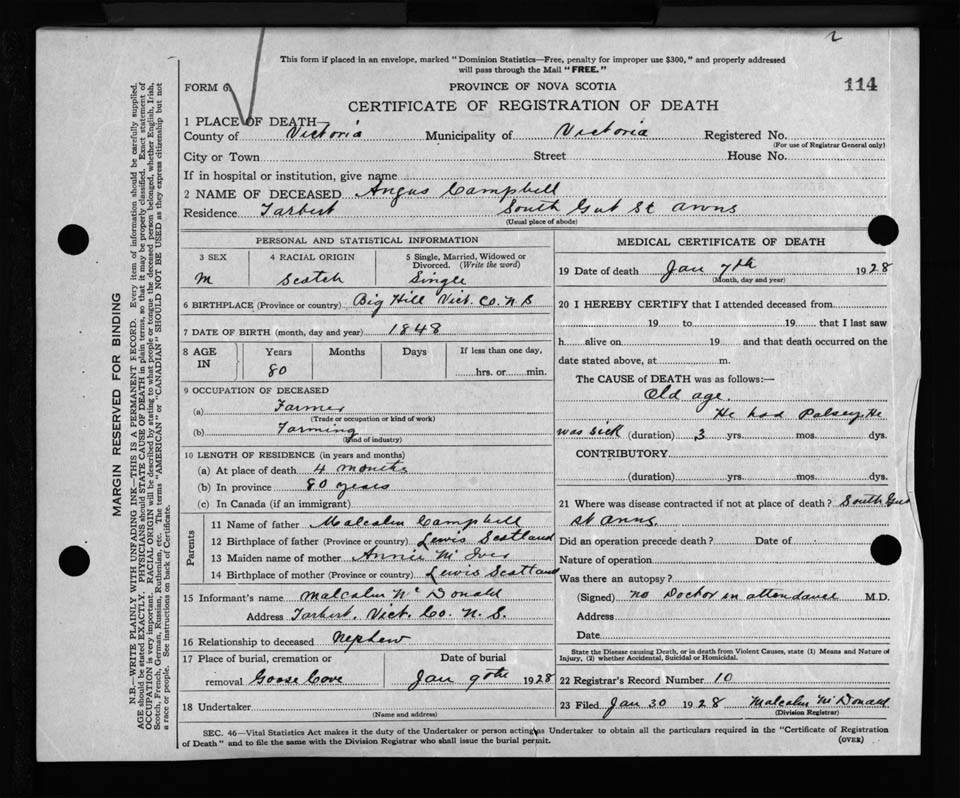 2
This form if placed in an envelope, marked "Dominion Statistics—Free, penalty for improper use $300," and properly addressed
will pass through the Mail "FREE."
FORM 6. PROVINCE OF NOVA SCOTIA 114
CERTIFICATE OF REGISTRATION OF DEATH
1 PLACE OF DEATH—
County of Victoria Municipality of Victoria Registered No.
(For use of Registrar General only)
City or Town Street House No.
If in hospital or institution, give name
2 NAME OF DECEASED Angus Campbell
Residence Tarbert South Gut St Anns
(Usual place of abode)
PERSONAL AND STATISTICAL INFORMATION
3 SEX 4 RACIAL ORIGIN 5 Single, Married, Widowed or
Divorced. (Write the word)
M Scotch Single
6 BIRTHPLACE (Province or country) Big Hill Vict. Co. N S
7 DATE OF BIRTH (month, day and year) 1848
8 AGE IN Years Months Days If less than one day,
80 hrs. or min.
9 OCCUPATION OF DECEASED
(a) Farmer
(Trade or occupation or kind of work)
(b) Farming
(Kind of industry)
10 LENGTH OF RESIDENCE (in years and months)
(a) At place of death 4 months
(b) In province 80 years
(c) In Canada (if an immigrant)
Parents
11 Name of father Malcolm Campbell
12 Birthplace of father (Province or country) Lewis Scotland
13 Maiden name of mother Annie McIver
14 Birthplace of mother (Province or country) Lewis Scotland
15 Informant's name Malcolm McDonald
Address Tarbert, Vict. Co. N. S.
16 Relationship to deceased Nephew
17 Place of burial, cremation or Date of burial
removal Goose Cove Jan 9th 1928
18 Undertaker
(Name and address)
MEDICAL CERTIFICATE OF DEATH
19 Date of death Jan 7th 1928
(Month, day and year)
20 I HEREBY CERTIFY that I attended deceased from
19 to 19 that I last saw
h alive on 19 and that death occurred on the
date stated above, at m.
The CAUSE of DEATH was as follows:—
Old age.
He had Palsey, He
was sick (duration) 3 yrs. mos. dys.
CONTRIBUTORY
(duration) yrs. mos. dys.
21 Where was disease contracted if not at place of death? South Gut
St Anns
Did an operation precede death? Date of
Nature of operation
Was there an autopsy?
(Signed) no Doctor in attendance M.D.
Address
Date
State the Disease causing Death, or in death from Violent Causes, state (1) Means and Nature of
Injury, (2) whether Accidental, Suicidal or Homicidal.
22 Registrar's Record Number 10
23 Filed Jan 30 1928 Malcolm McDonald
(Division Registrar)
SEC. 46—Vital Statistics Act makes it the duty of the Undertaker or person acting as Undertaker to obtain all the particulars required in the "Certificate of Registration
of Death" and to file the same with the Division Registrar who shall issue the burial permit. (OVER)
MARGIN RESERVED FOR BINDING
N.B.—WRITE PLAINLY WITH UNFADING INK—THIS IS A PERMANENT RECORD. Every item of information should be carefully supplied.
AGE should be stated EXACTLY. PHYSICIANS should STATE CAUSE OF DEATH in plain terms, so that it may be properly classified. Exact statement of
OCCUPATION is very important. RACIAL ORIGIN will be described by stating to what people or tongue the deceased person belonged, whether English, Irish,
Scotch, French, German, Russian, Ruthenian, etc. The terms "AMERICAN" or "CANADIAN" SHOULD NOT BE USED as they express citizenship but not
a race or people. See instructions on back of Certificate.